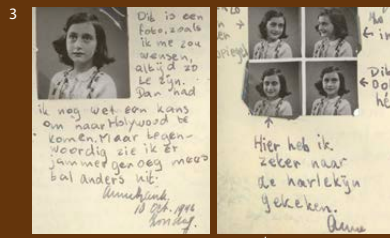 3
Dit is een
foto, zoals
ik me zou
wensen,
altijd zo
te zijn.
Dan had
ik nog wel een kans
om naar Holywood te
komen. Maar tegen-
woordig zie ik er
jammer genoeg mees
tal anders uit.
Annefrank.
10 Oct. 1942
Zondag.
Dit
Hier heb ik
zeker naar
de harlekijn
gekeken.
Anne